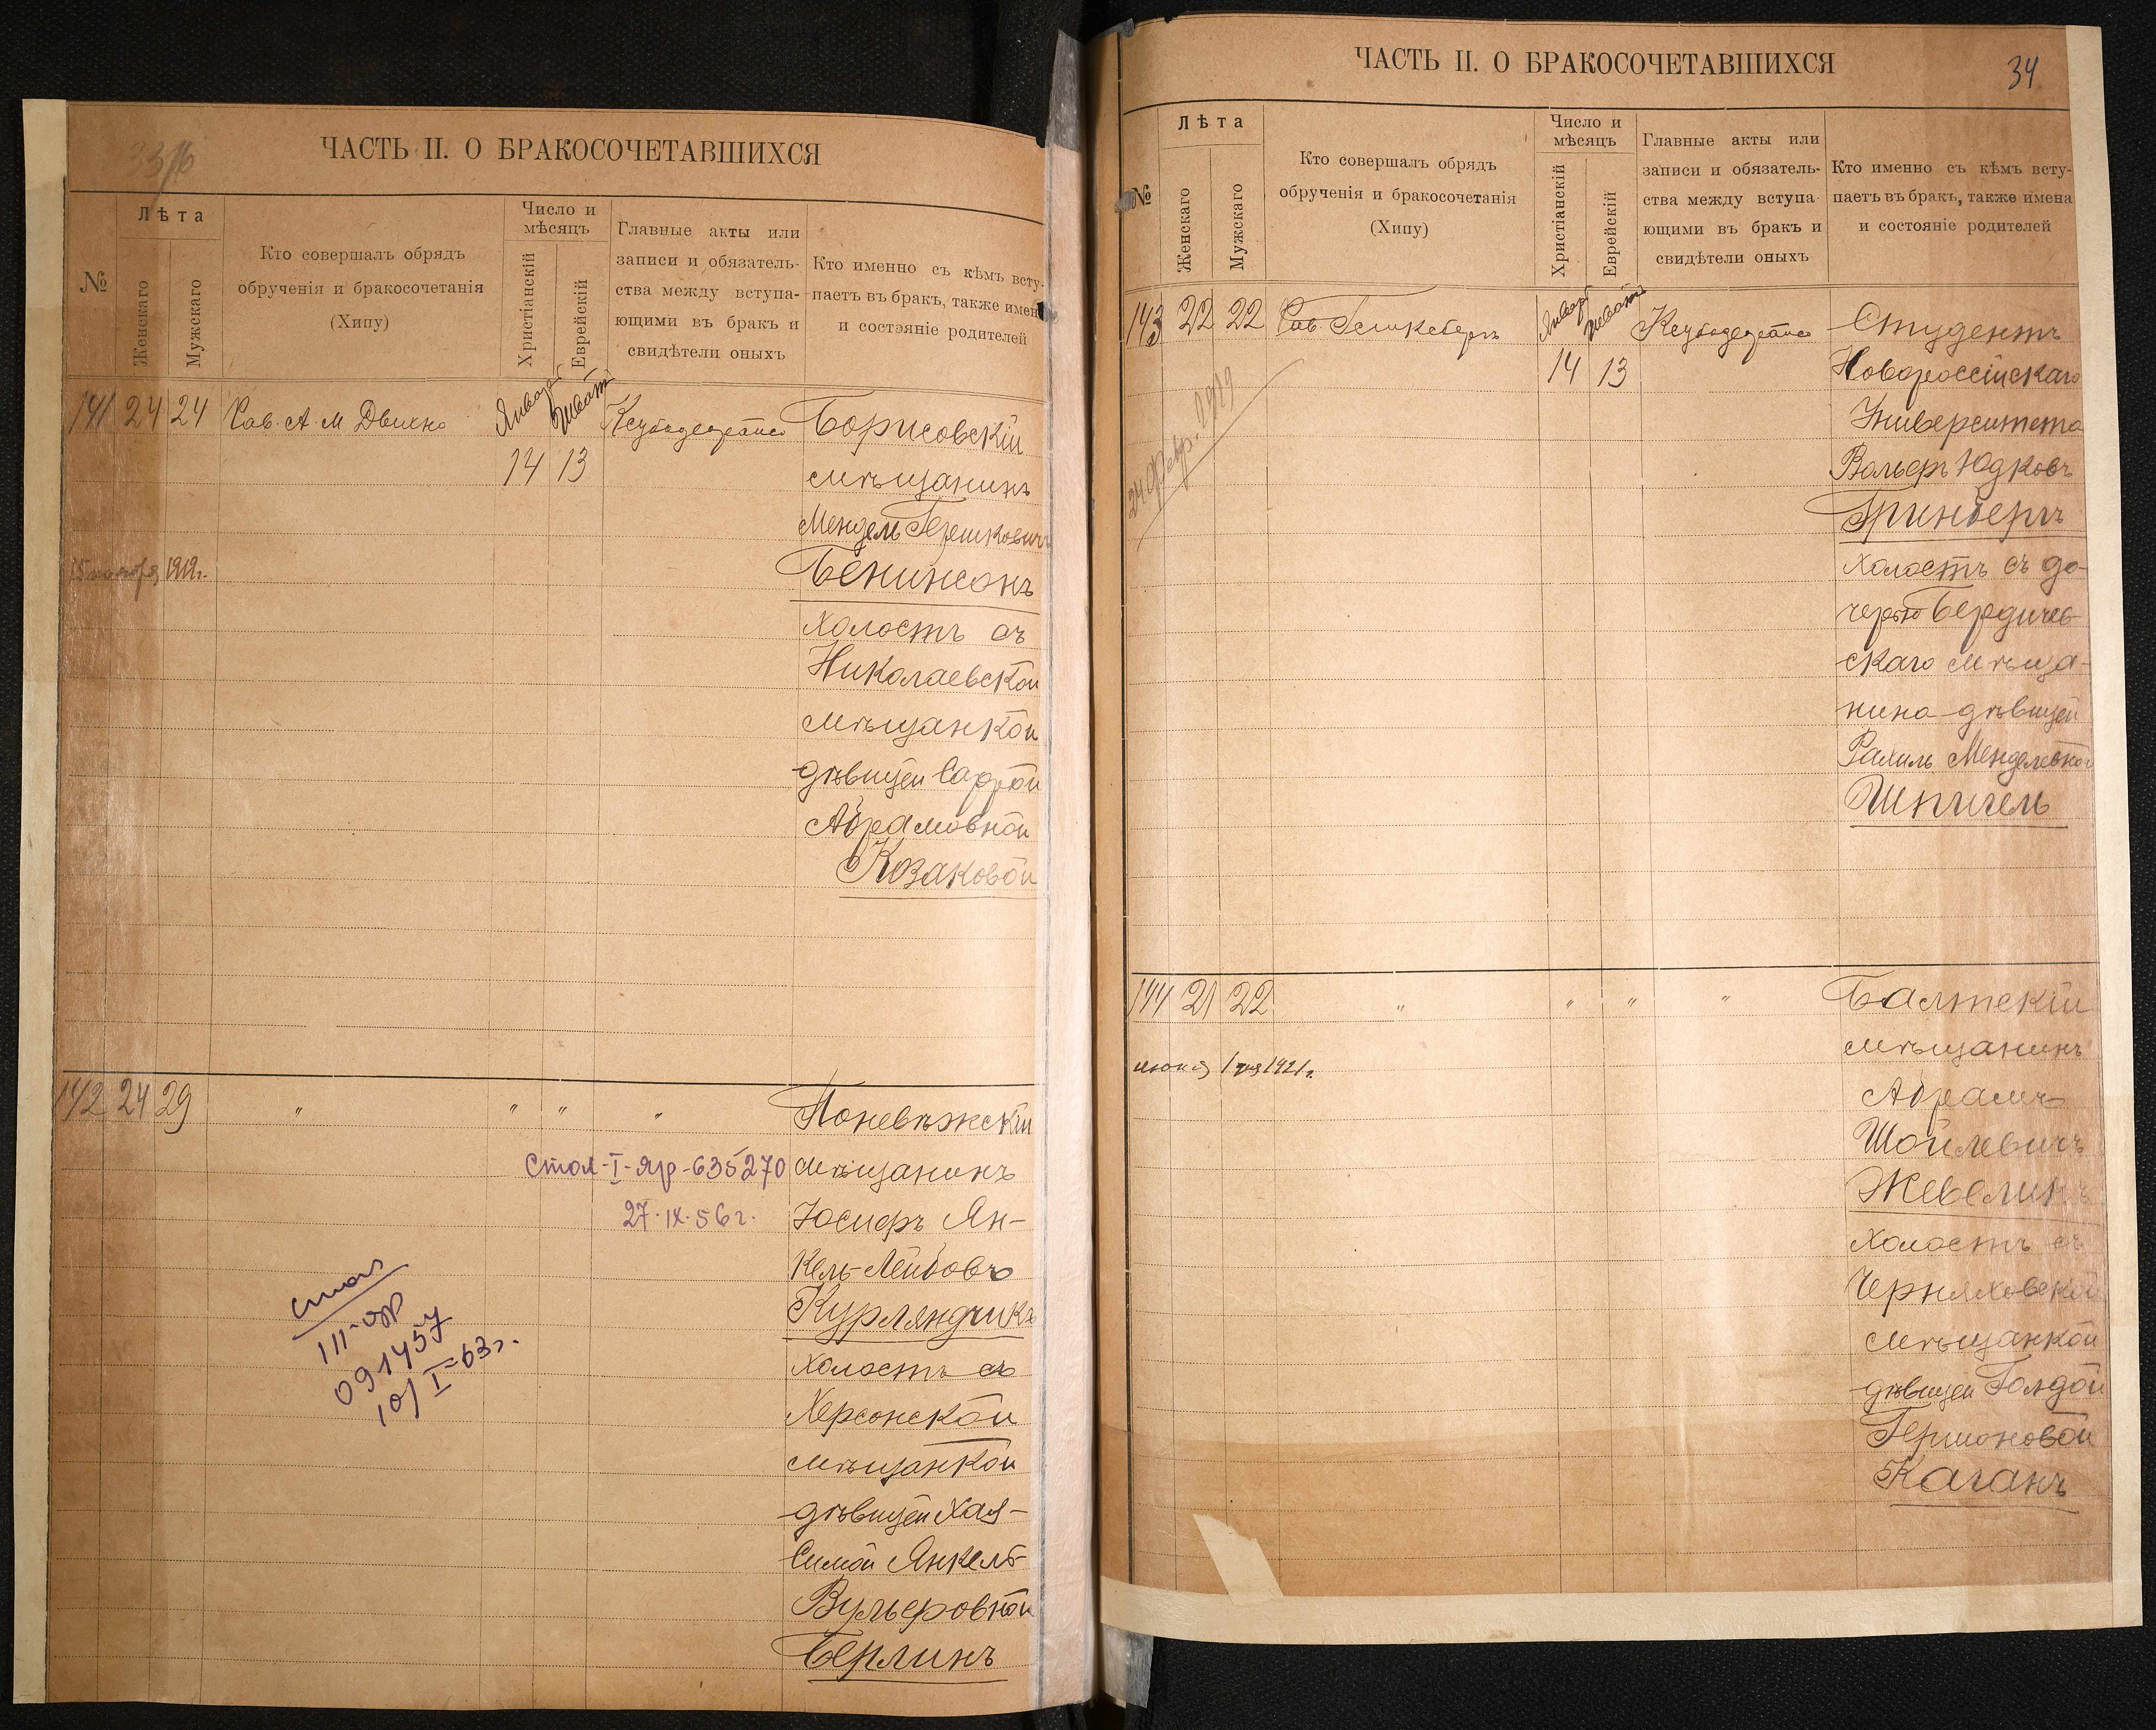 ЧАСТЬ II. О БРАКОСОЧЕТАВШИХСЯ
№
Лѣта
Женскаго
Мужскаго
Кто совершалъ обрядъ
обрученія и бракосочетанія
(Хипу)
Число и
мѣсяцъ
Христіанскій
Еврейскій
Главные акты или
записи и обязатель-
ства между вступа-
ющими въ бракъ и
свидѣтели оныхъ
Кто именно съ кѣмъ всту-
паетъ въ бракъ, также имен
и состяніе родителей
141 24 24 Рав. А. М Двинъ Январь Шватъ
14 13
Борисовскій
мѣщанинъ
Мендель Гершковичъ
Бенинсонъ
холостъ съ
Николаевской
мѣщанкой
дѣвицей Саррой
Абрамовной
Козаковой
1919г.
142 24 29 " " " "
Поневѣжскій
мѣщанинъ
Іосифъ Ян-
кель-Лейбовъ
Курляндчикъ
холостъ съ
Херсонской
мѣщанкой
дѣвицей Хая-
Симой Янкель-
Вульфовной
Берлинъ
Стол-I-яр-635270
27.IX.56г.
III-яр
091457
10/I-63г.
ЧАСТЬ II. О БРАКОСОЧЕТАВШИХСЯ
34
№
Лѣта
Женскаго
Мужскаго
Кто совершалъ обрядъ
обрученія и бракосочетанія
(Хипу)
Число и
мѣсяцъ
Христіанскій
Еврейскій
Главные акты или
записи и обязатель-
ства между вступа-
ющими въ бракъ и
свидѣтели оныхъ
Кто именно съ кѣмъ всту-
паетъ въ бракъ, также имена
и состояніе родителей
143 22 22 Рав. Январь Шватъ
14 13
24 февр. 1919
Студентъ
Новороссійскаго
Университета
Вольфъ Юдковъ
Гринбергъ
холостъ съ до-
черью Бердичев-
скаго мѣща-
нина дѣвицей
Рахиль Менделевной
Шпигель
144 21 22 " " " "
1921г.
Балтскій
мѣщанинъ
Абрамъ
Шойлевичъ
Жевелинъ
холостъ съ
Черняховской
мѣщанкой
дѣвицей Голдой
Гершоновой
Каганъ